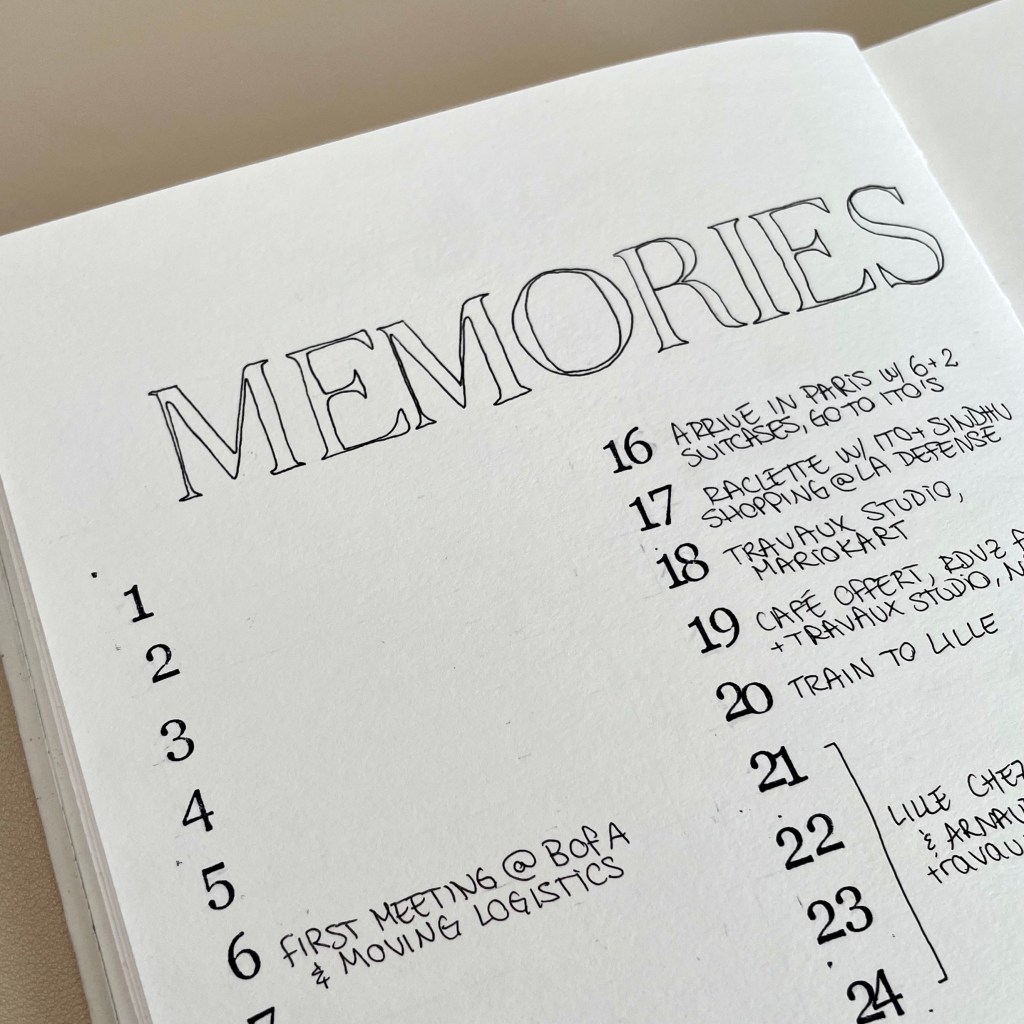 MEMORIES
1
2
3
4
5
6 FIRST MEETING @ BOFA
& MOVING LOGISTICS
7
16 ARRIVE IN PARIS W/ 6+2
SUITCASES, GO TO ITO'S
17 RACLETTE W/ ITO+ SINDHU
SHOPPING @ LA DEFENSE
18 TRAVAUX STUDIO,
MARIOKART
19 CAFÉ OFFERT, RDVZ
+TRAVAUX STUDIO,
20 TRAIN TO LILLE
21
22
23
24
LILLE CHEZ
& ARNAU
travau